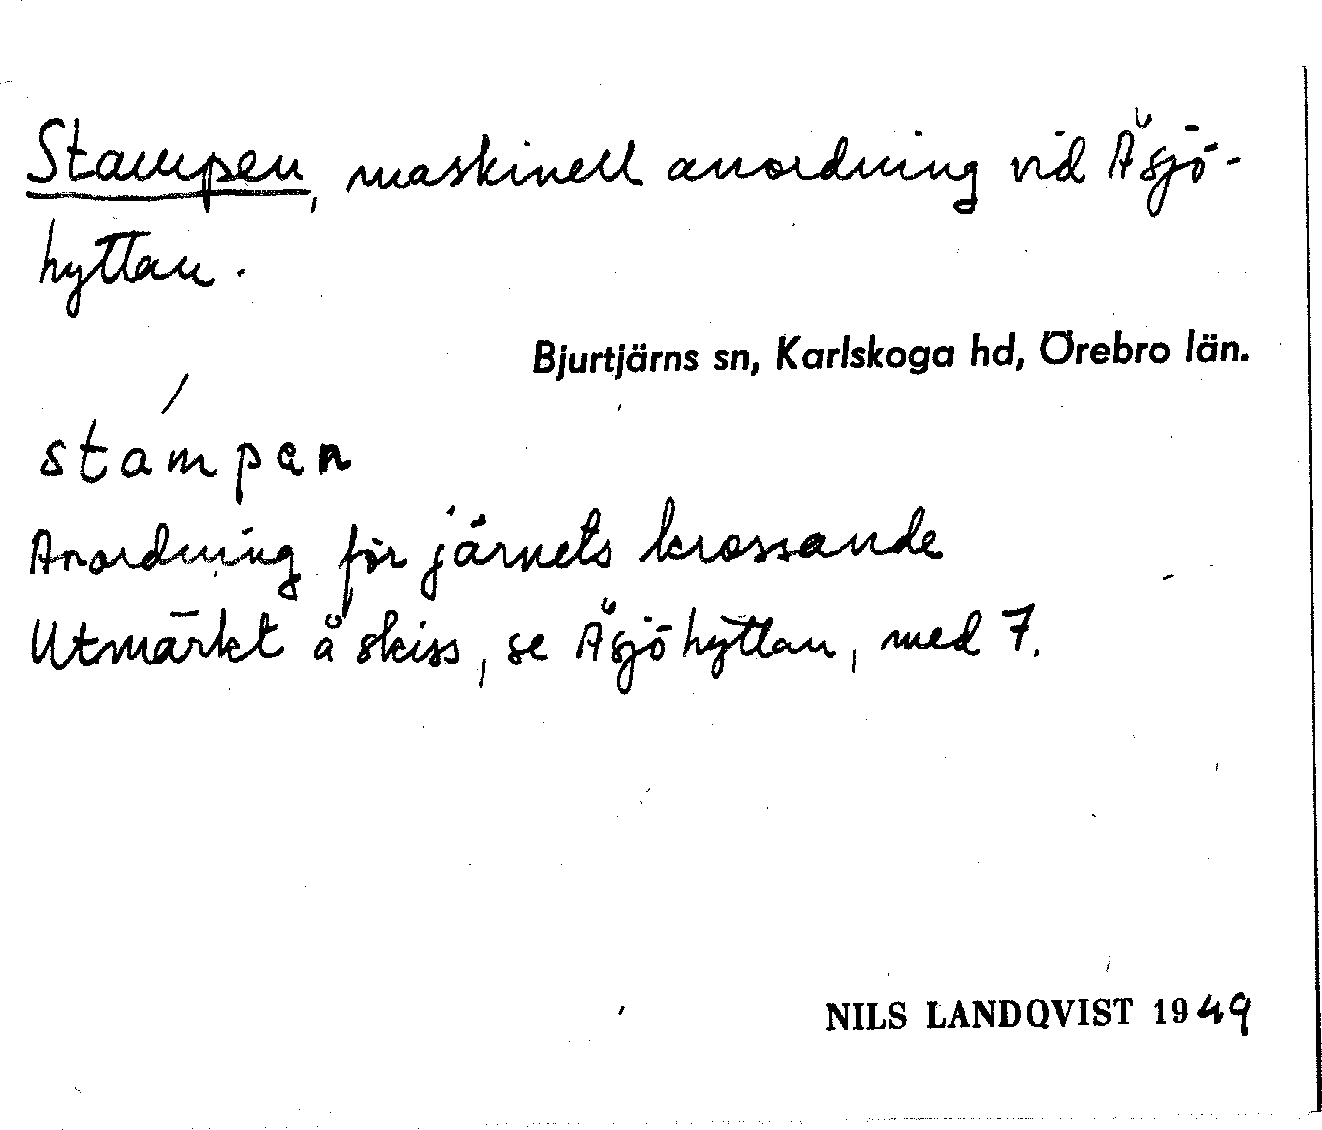 Stampen, maskinell anordning vid Åsjö-
hyttan.
Bjurtjärns sn, Karlskoga hd, Örebro län.
stámpan
Anordning för järnets krossande
Utmärkt å skiss, se Åsjöhyttan, med 7.
NILS LANDQVIST 1949